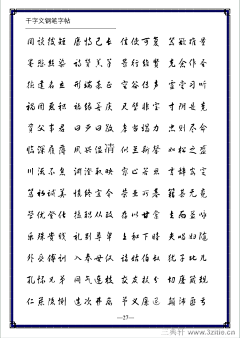 千字文钢笔字帖
罔谈彼短 靡恃己长 信使可复 器欲难量
墨悲丝染 诗赞羔羊 景行维贤 克念作圣
德建名立 形端表正 空谷传声 虚堂习听
祸因恶积 福缘善庆 尺璧非宝 寸阴是竞
资父事君 曰严与敬 孝当竭力 忠则尽命
临深履薄 夙兴温清 似兰斯馨 如松之盛
川流不息 渊澄取映 容止若思 言辞安定
笃初诚美 慎终宜令 荣业所基 籍甚无竟
学优登仕 摄职从政 存以甘棠 去而益咏
乐殊贵贱 礼别尊卑 上和下睦 夫唱妇随
外受傅训 入奉母仪 诸姑伯叔 犹子比儿
孔怀兄弟 同气连枝 交友投分 切磨箴规
仁慈隐恻 造次弗离 节义廉退 颠沛匪亏
—27—
www.3zitie.cn